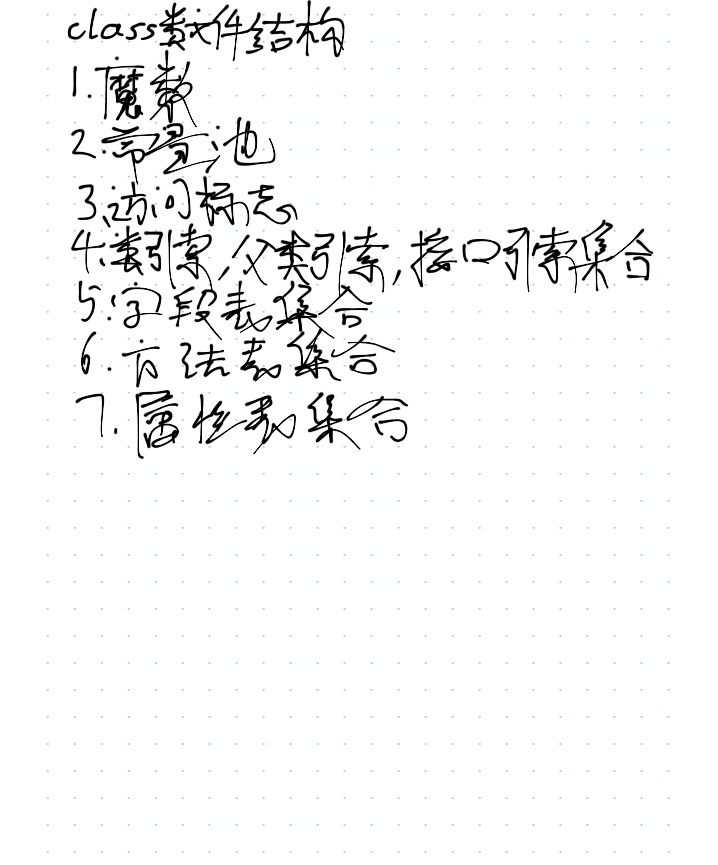 class类文件结构
1.魔数
2.常量池
3.访问标志
4.类引索,父类引索,接口引索集合
5.字段表集合
6.方法表集合
7.属性表集合